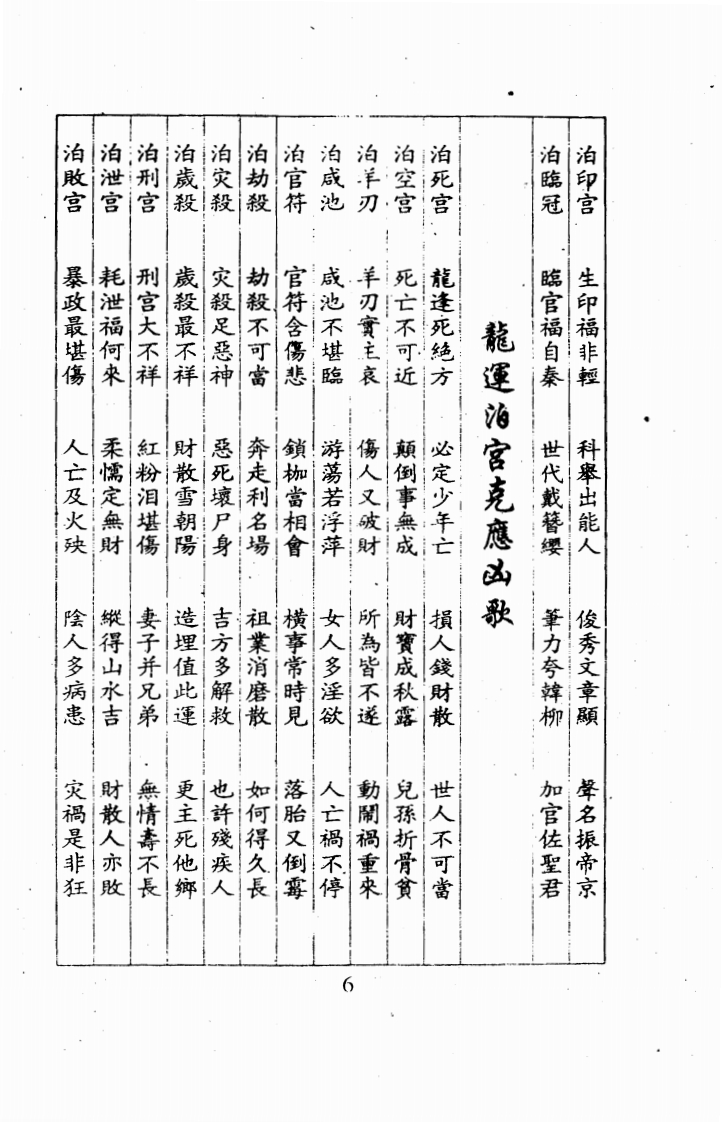 泊印宮 生印福非輕 科舉出能人 俊秀文章顯 聲名振帝京
泊臨冠 臨官福自秦 世代戴簪纓 筆力夸韓柳 加官佐聖君
龍運泊宮克應凶歌
泊死宮 龍逢死絕方 必定少年亡 損人錢財散 世人不可當
泊空宮 死亡不可近 顛倒事無成 財寶成秋露 兒孫折骨貧
泊羊刃 羊刃實主哀 傷人又破財 所為皆不遂 動鬧禍重來
泊咸池 咸池不堪臨 游蕩若浮萍 女人多淫欲 人亡禍不停
泊官符 官符含傷悲 鎖枷當相會 橫事常時見 落胎又倒霉
泊劫殺 劫殺不可當 奔走利名場 祖業消磨散 如何得久長
泊灾殺 灾殺足惡神 惡死壞尸身 吉方多解救 也許殘疾人
泊歲殺 歲殺最不祥 財散雪朝陽 造埋值此運 更主死他鄉
泊刑宮 刑宮大不祥 紅粉泪堪傷 妻子并兄弟 無情壽不長
泊泄宮 耗泄福何來 柔懦定無財 縱得山水吉 財散人亦敗
泊敗宮 暴政最堪傷 人亡及火殃 陰人多病患 灾禍是非狂
6